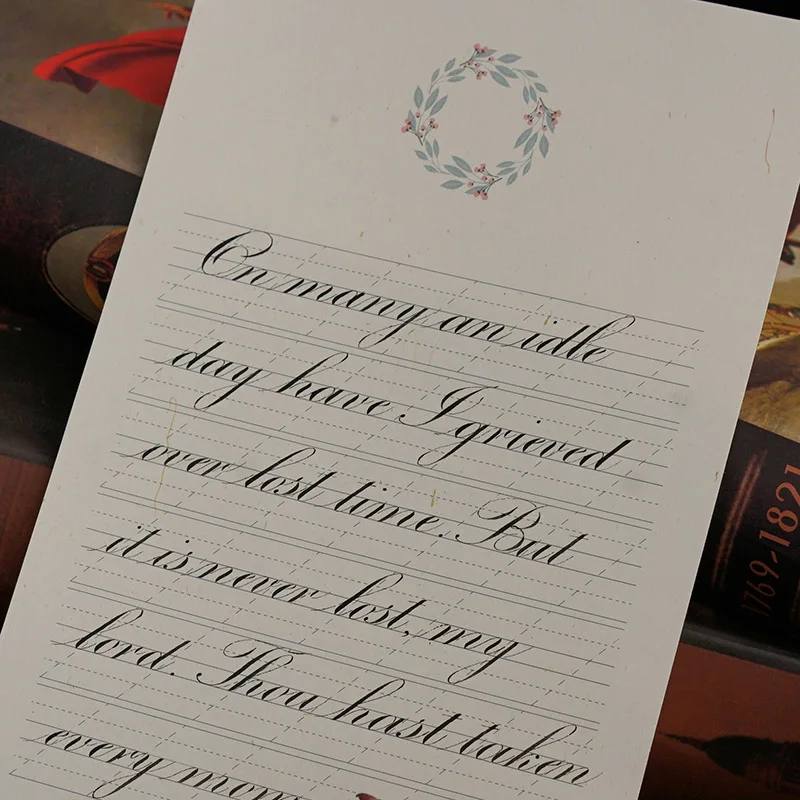 On many an idle
day have I grieved
over lost time. But
it is never lost, my
lord. Thou hast taken
every mom
1769-1821